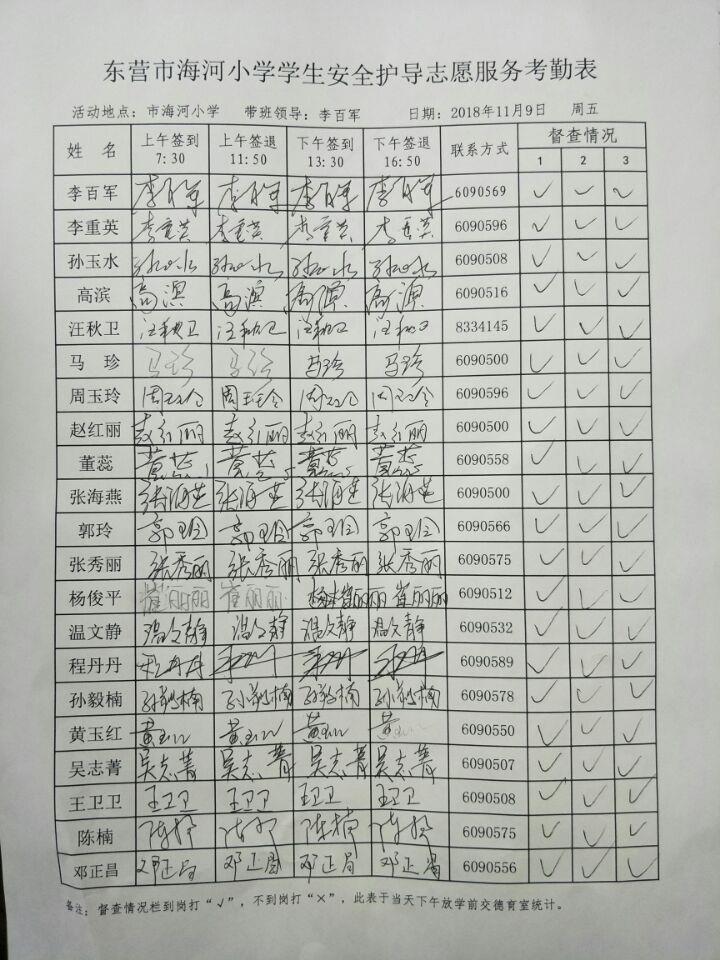 东营市海河小学学生安全护导志愿服务考勤表
活动地点：市海河小学 带班领导：李百军 日期：2018年11月9日 周五
姓 名 上午签到 7:30 上午签退 11:50 下午签到 13:30 下午签退 16:50 联系方式 督查情况 1 2 3
李百军 李百军 李百军 李百军 李百军 6090569 ✓ ✓ ✓
李重英 李重英 李重英 李重英 李重英 6090596 ✓ ✓ ✓
孙玉水 孙玉水 孙玉水 孙玉水 孙玉水 6090508 ✓ ✓ ✓
高滨 高滨 高滨 高滨 高滨 6090516 ✓ ✓ ✓
汪秋卫 汪秋卫 汪秋卫 汪秋卫 汪秋卫 8334145 ✓ ✓ ✓
马 珍 马珍 马珍 马珍 马珍 6090500 ✓ ✓ ✓
周玉玲 周玉玲 周玉玲 周玉玲 周玉玲 6090596 ✓ ✓ ✓
赵红丽 赵红丽 赵红丽 赵红丽 赵红丽 6090500 ✓ ✓ ✓
董蕊 董蕊 董蕊 董蕊 董蕊 6090558 ✓ ✓ ✓
张海燕 张海燕 张海燕 张海燕 张海燕 6090500 ✓ ✓ ✓
郭玲 郭玲 郭玲 郭玲 郭玲 6090566 ✓ ✓ ✓
张秀丽 张秀丽 张秀丽 张秀丽 张秀丽 6090575 ✓ ✓ ✓
杨俊平 崔丽丽 崔丽丽 崔丽丽 崔丽丽 6090512 ✓ ✓ ✓
温文静 温文静 温文静 温文静 温文静 6090532 ✓ ✓ ✓
程丹丹 程丹丹 6090589 ✓ ✓ ✓
孙毅楠 孙毅楠 孙毅楠 孙毅楠 孙毅楠 6090578 ✓ ✓ ✓
黄玉红 黄玉红 黄玉红 黄玉红 黄 6090550 ✓ ✓ ✓
吴志菁 吴志菁 吴志菁 吴志菁 吴志菁 6090507 ✓ ✓ ✓
王卫卫 王卫卫 王卫卫 王卫卫 王卫卫 6090508 ✓ ✓ ✓
陈楠 陈楠 陈楠 陈楠 陈楠 6090575 ✓ ✓ ✓
邓正昌 邓正昌 邓正昌 邓正昌 邓正昌 6090556 ✓ ✓ ✓
备注：督查情况栏到岗打“√”，不到岗打“×”，此表于当天下午放学前交德育室统计。